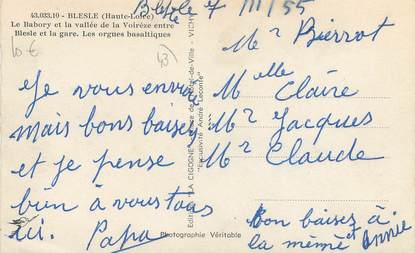 43.033.10 - BLESLE (Haute-Loire)
Le Babory et la vallée de la Voirèze entre
Blesle et la gare. Les orgues basaltiques
10 €
43)
Blesle 7/III/55
Je vous envoie
mais bons baisez
et je pense
bien à vous tous
ici. Papa
LA CIGOGNE
de-Ville - VICHY
"Exclusivité André Leconte"
Photographie Véritable
Mr Pierrot
Melle Claire
Mr Jacques
Mr Claude
bon baisez à
la mémé et Annie